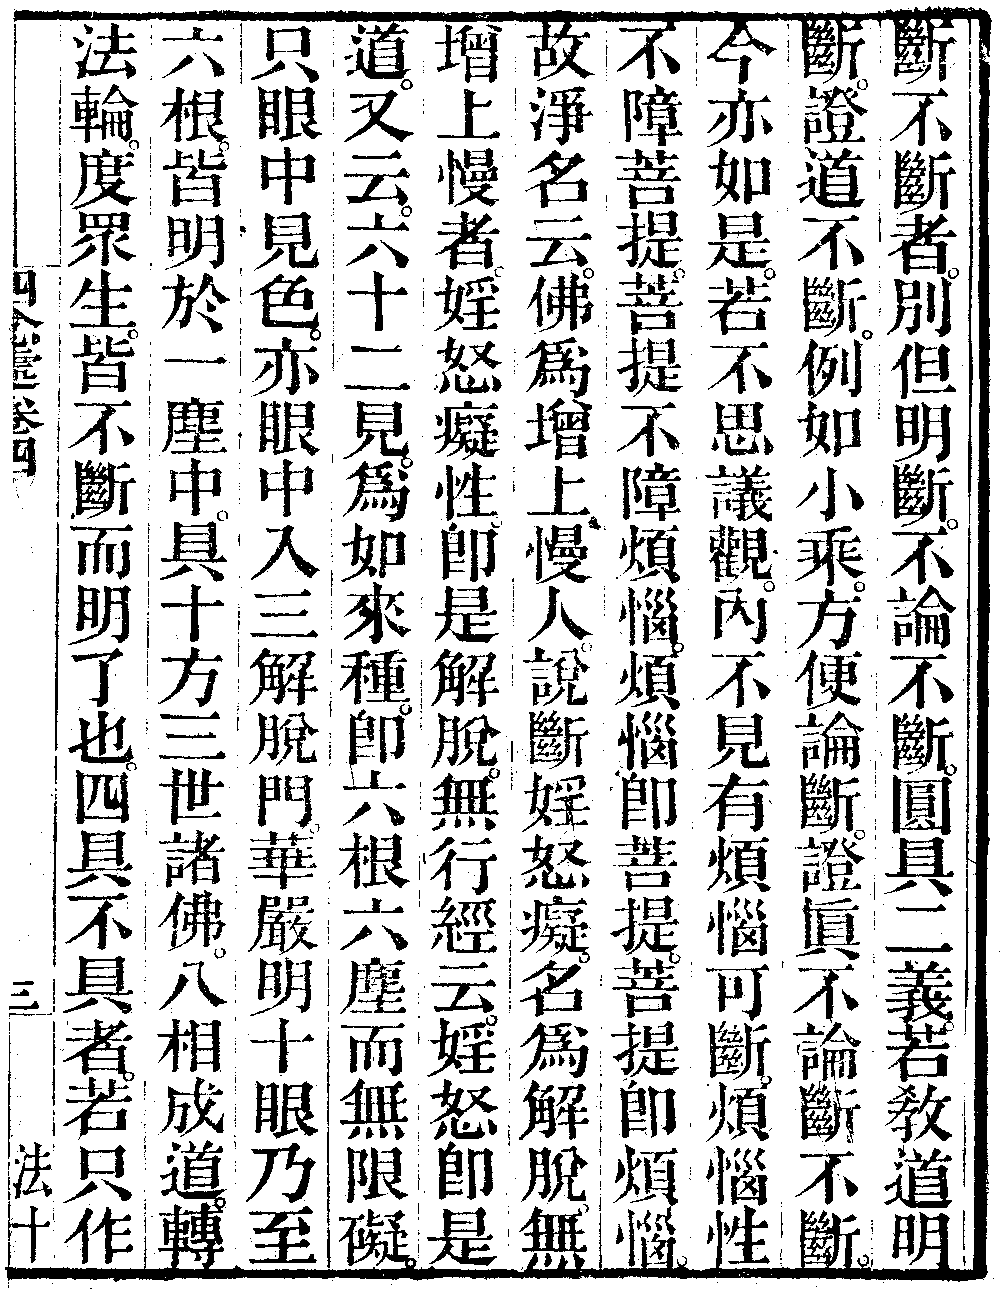 斷不斷者。別但明斷。不論不斷。圓具二義。若敎道明
斷。證道不斷。例如小乘。方便論斷。證眞不論斷不斷。
今亦如是。若不思議觀。內不見有煩惱可斷。煩惱性
不障菩提。菩提不障煩惱。煩惱卽菩提。菩提卽煩惱。
故淨名云。佛爲增上慢人。說斷婬怒癡。名爲解脫。無
增上慢者。婬怒癡性。卽是解脫。無行經云。婬怒卽是
道。又云。六十二見。爲如來種。卽六根六塵而無限礙。
只眼中見色。亦眼中入三解脫門。華嚴明十眼乃至
六根。皆明於一塵中。具十方三世諸佛。八相成道。轉
法輪。度眾生。皆不斷而明了也。四具不具者。若只作
四念處卷四
三
法十